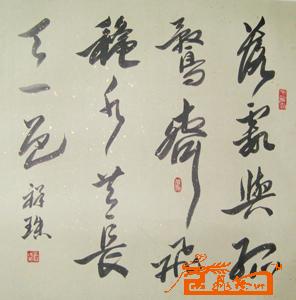 落霞與孤
鶩齊飛
龝水共長
天一色
祥珠